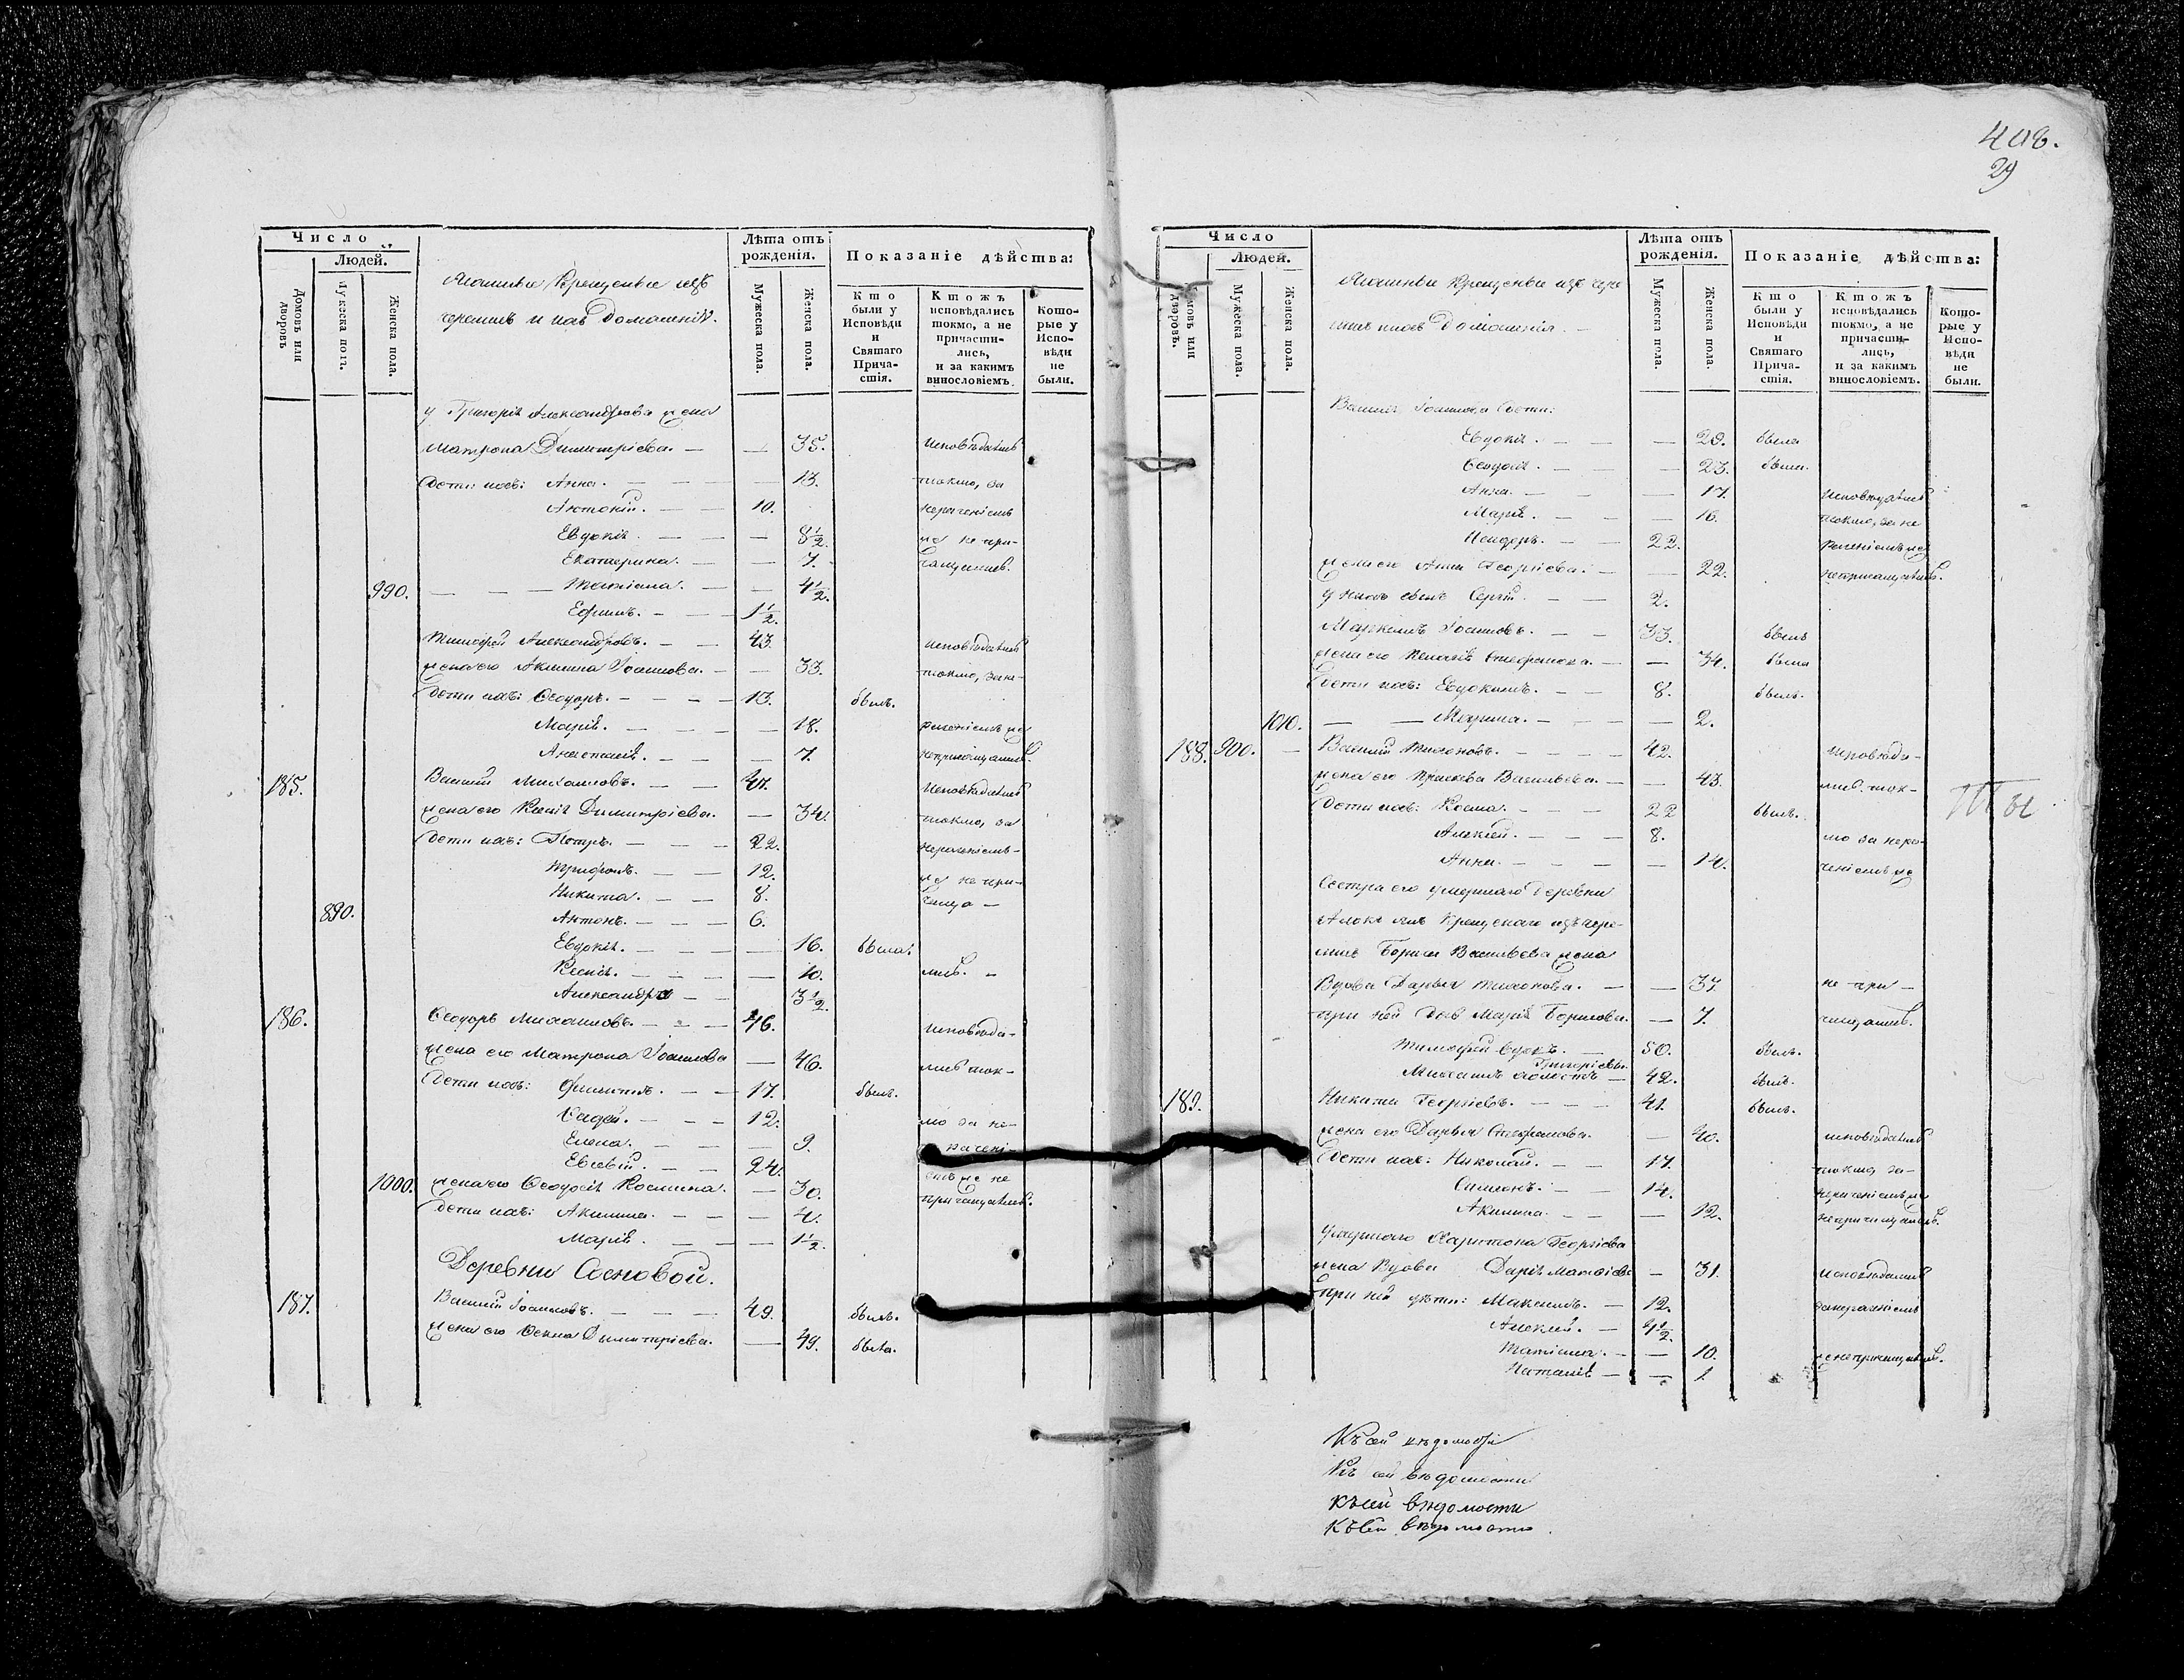 408.
29
Число
Людей.
Домовъ или дворовъ
Мужеска полъ.
Женска пола.
Ясашные Крещеные изъ
черемисъ и ихъ домашнiи.
Лѣта отъ рожденія.
Мужеска пола.
Женска пола.
Показаніе дѣйства:
Кто были у Исповѣди и Святаго Причастія.
Ктожъ исповѣдались токмо, а не причастились, и за какимъ винословіемъ.
Которые у Исповѣди не были.
у Григорія Александрова жена
Матрона Димитріева. — — 35. исповѣдались
Дети ихъ: Анна. — — — 13. токмо, за
Антоній. — — 10. нераченіемъ
Евдокія. — — — 8½. же не при-
Екатерина. — — 7. чащались.
990. — — — Татіана. — — 4½.
Ефимъ. — — 1½.
Тимофей Александровъ. — — 43. исповѣдались
жена его Акилина Іоаннова. — — 33. токмо, за не-
Дети ихъ: Ѳеодоръ. — — — — 13. былъ.
Марія. — — — — 18. раченіемъ же
Анастасія. — — — 7. не причащались.
185. Василій Михаиловъ. — — 41. Исповѣдались
жена его Ксенія Димитріева. — 34. токмо, за
Дети ихъ: Петръ. — — — 22. нераченіемъ-
Трифонъ. — — 12. же не при-
Никита. — — 8. чаща —
890. Антонъ. — — 6.
Евдокія. — — — — 16. была.
Ксенія. — — — — 10. лись. —
Александра — — 3½.
186. Ѳеодоръ Михаиловъ. — — — 46. Исповѣда-
жена его Матрона Іоаннова — 46. лись ток-
Дети ихъ: Филиппъ. — — — 17. былъ.
Ѳадей. — — — 12. мо за не-
Елена. — — — 9. рачені-
Евсевій. — — 24. емъ же не
1000. жена его Ѳеодосія Космина. — 30. причащались.
Дети ихъ: Акилина. — — — 4.
Марія. — — — 1½.
Деревни Сосновой.
187. Василій Іоанновъ. — — — 49. былъ.
жена его Ѳекла Димитріева. — 49. была.
Число
Людей.
Домовъ или дворовъ.
Мужеска пола.
Женска пола.
Ясашные Крещеные изъ чере
мисъ и ихъ домашнія. —
Лѣта отъ рожденія.
Мужеска пола.
Женска пола.
Показаніе дѣйства:
Кто были у Исповѣди и Святаго Причастія.
Ктожъ исповѣдались токмо, а не причастились, и за какимъ винословіемъ.
Которые у Исповѣди не были.
Василія Іоаннова Дети:
Евдокія. — — — 29. была
— — — 23. была.
Анна. — — — 17. исповѣдались
Марія. — — — 16. токмо, за не
Исидоръ. — — 22. раченіемъ же
жена его Анна Георгіева. — — 22. не причащались.
у нихъ сынъ Сергій. — — 2.
Маркеллъ Іоанновъ. — — 33. былъ
жена его Пелагія Стефанова. — — 34. была
Дети ихъ: Евдокимъ. — — 8. былъ.
1010. — — Марина. — — — — 2.
188. 900. — Василій Тихоновъ. — — — — 42. исповѣда-
жена его Праскева Васильева. — — 43. лись ток-
Дети ихъ: Косма. — — — 22 былъ.
Алексей. — — — 8. мо за нера-
Анна. — — — — — 14. ченіемъ же
Сестра его умершаго деревни
Крещенаго изъ чере-
мисъ Бориса Васильева жена
Вдова Дарья Тихонова. — — 37. не при —
при ней дчь Марія Борисова. — 7. чащались.
Тимофей — 50. былъ.
Григорьевъ.
Михаилъ — 42. былъ.
189. Никита Георгіевъ. — — — 41. былъ.
жена его Дарья Стефанова. — 40. исповѣдались
Дети ихъ: Николай. — — 17. токмо, за-
Симеонъ. — — 14. нераченіемъ же
Акилина. — — — 12. не причащались.
Умершаго Харитона Георгіева
жена Вдова Дарія Матѳіева — 31. исповѣдались
при ней дѣти: Максимъ. — 12. за нераченіемъ
Алексей. — 4½.
Татіана. — — 10. же не причащались.
Наталія — — 1.
Къ сей вѣдомости
Къ сей вѣдомости
Къ сей вѣдомости
Къ сей вѣдомости